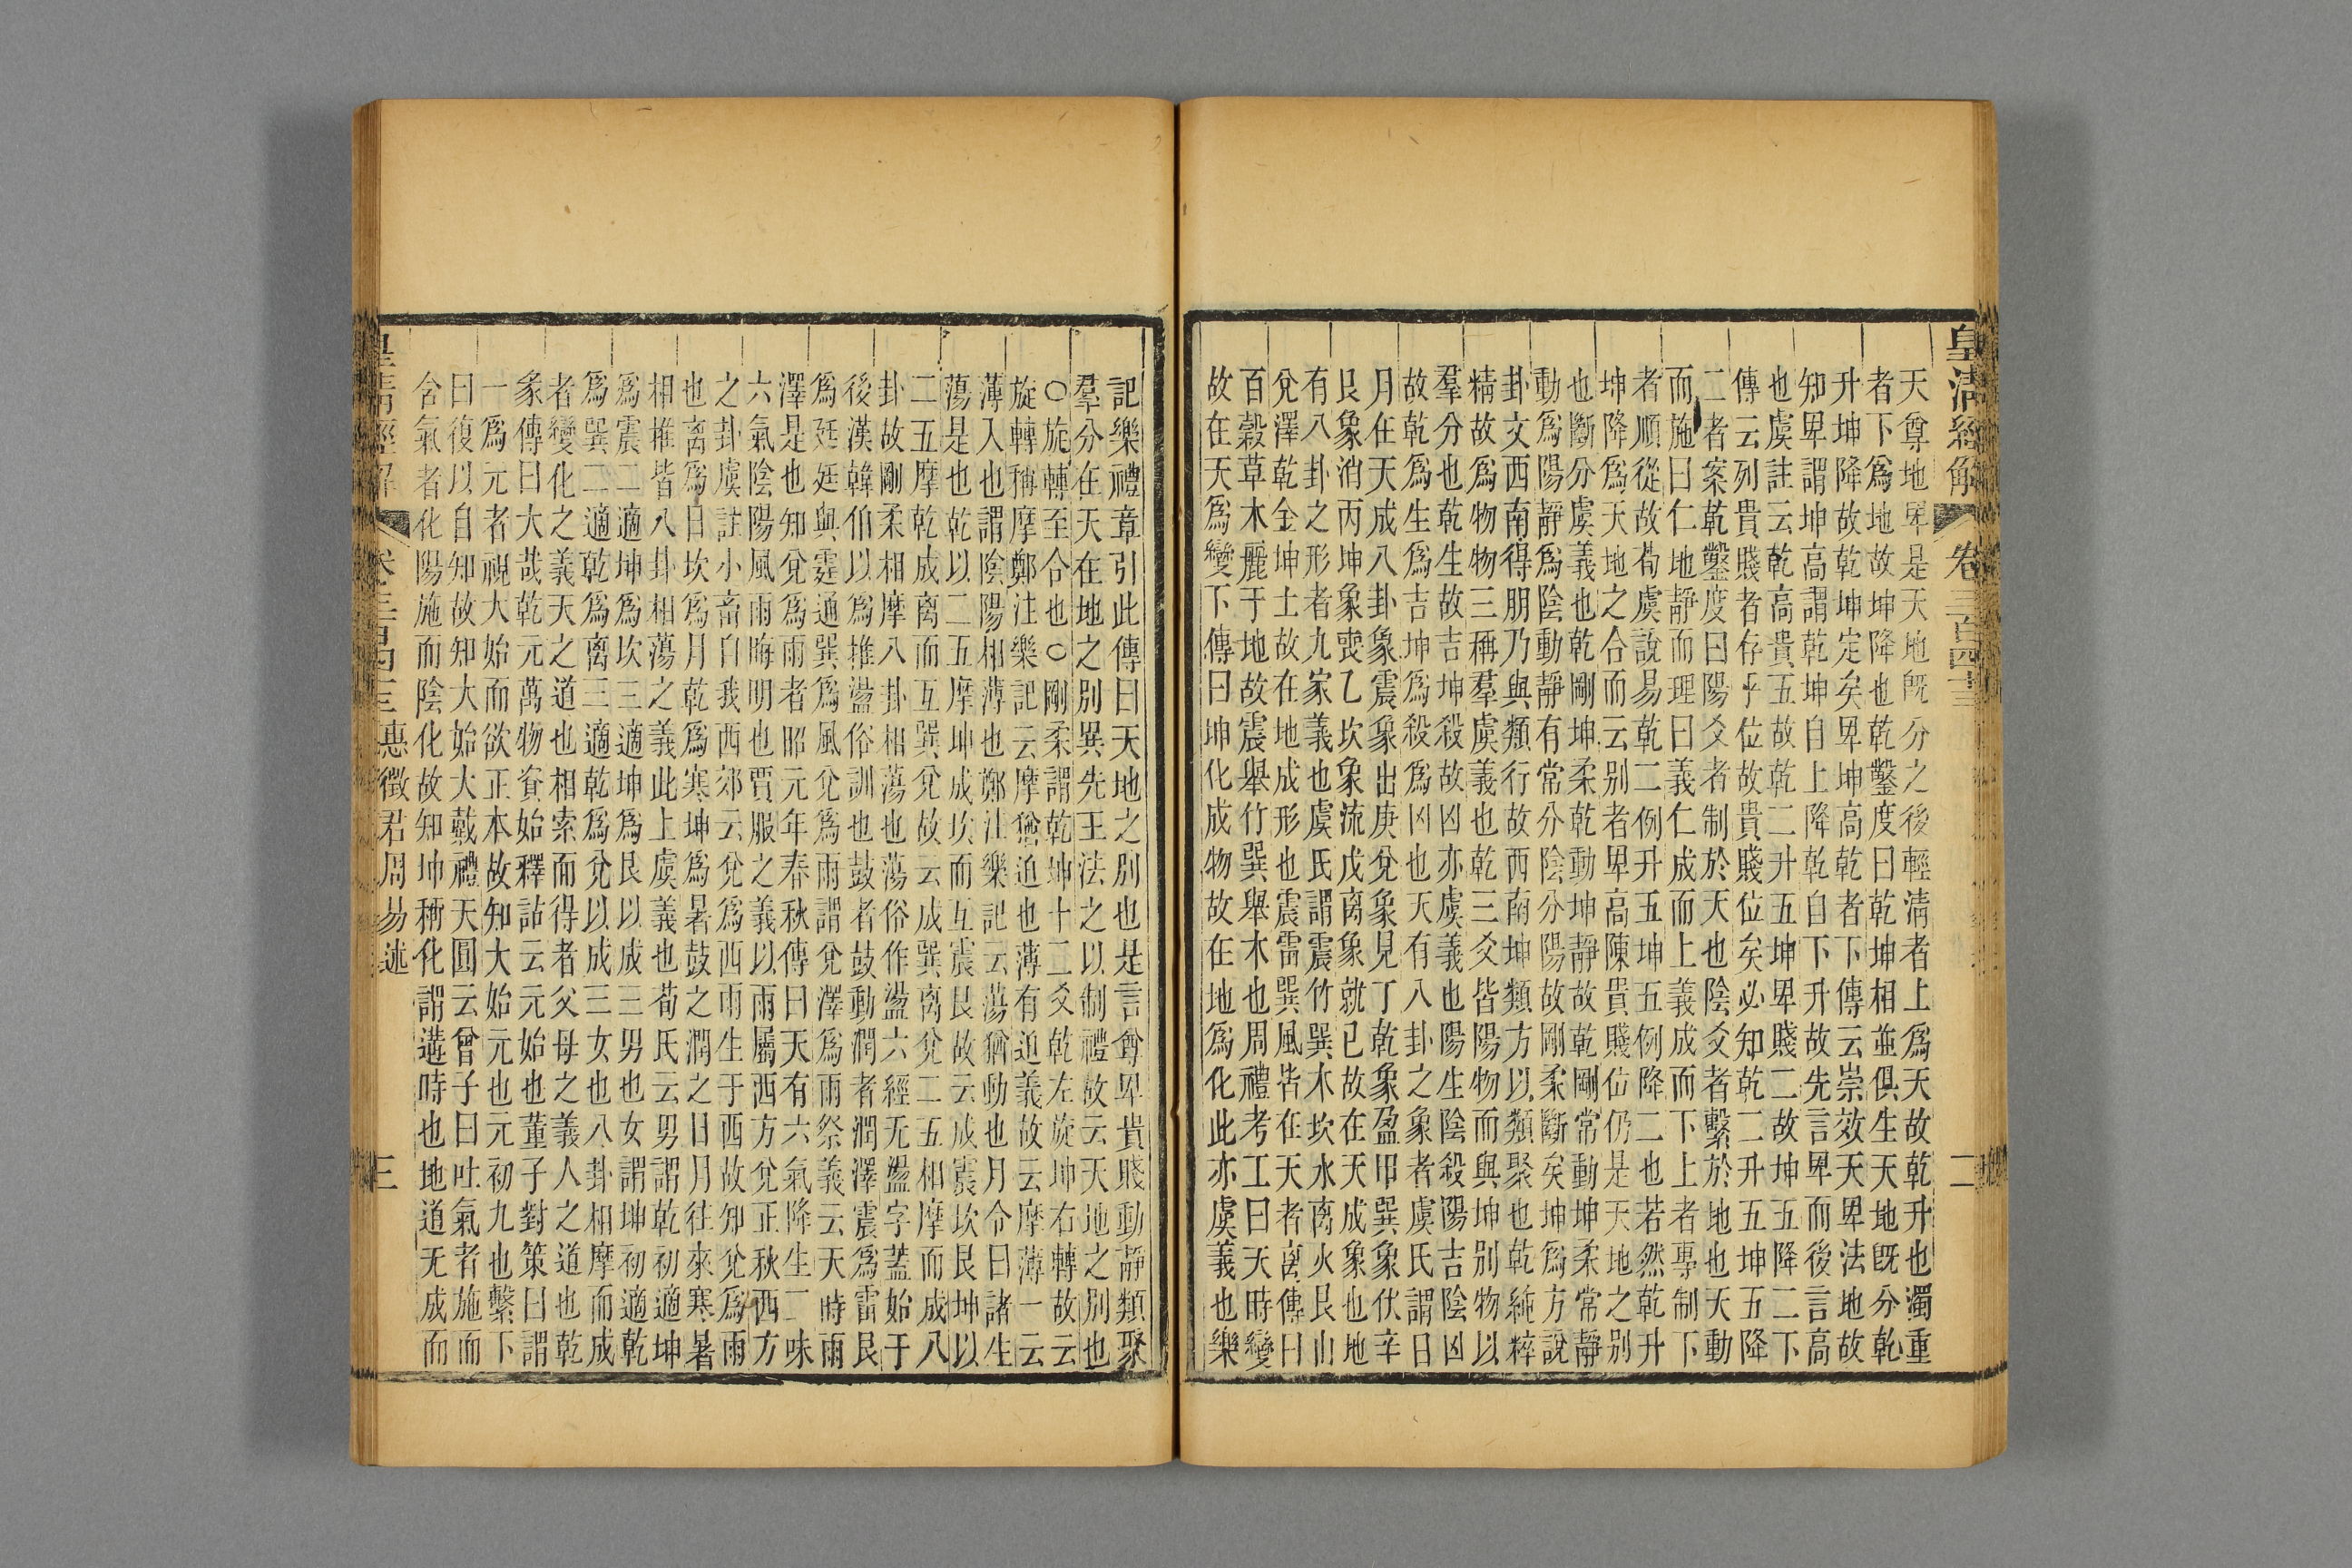 皇淸經解
卷三百四十三
二
天尊地卑是天地旣分之後輕淸者上爲天故乾升也濁重
者下爲地故坤降也乾鑿度曰乾坤相並俱生天地旣分乾
升坤降故乾坤定矣卑坤高乾者下傳云崇效天卑法地故
知卑謂坤高謂乾坤自上降乾自下升故先言卑而後言高
也虞註云乾高貴五故乾二升五坤卑賤二故坤五降二下
傳云列貴賤者存乎位故貴賤位矣必知乾二升五坤五降
二者案乾鑿度曰陽爻者制於天也陰爻者繫於地也天動
而施曰仁地靜而理曰義仁成而上義成而下上者專制下
者順從故荀虞說易乾二例升五坤五例降二也若然乾升
坤降爲天地之合而云别者卑高陳貴賤位仍是天地之别
也斷分虞義也乾剛坤柔乾動坤靜故乾剛常動坤柔常靜
動爲陽靜爲陰動靜有常分陰分陽故剛柔斷矣坤爲方說
卦文西南得朋乃與類行故西南坤類方以類聚也乾純粹
精故爲物物三稱羣虞義也乾三爻皆陽物而與坤别物以
羣分也乾生故吉坤殺故凶亦虞義也陽生陰殺陽吉陰凶
故乾爲生爲吉坤爲殺爲凶也天有八卦之象者虞氏謂日
月在天成八卦象震象出庚兌象見丁乾象盈甲巽象伏辛
艮象消丙坤象喪乙坎象流戊离象就已故在天成象也地
有八卦之形者九家義也虞氏謂震竹巽木坎水离火艮山
兌澤乾金坤土故在地成形也震雷巽風皆在天者离傳曰
百穀草木麗于地故震舉竹巽舉木也周禮考工曰天時變
故在天爲變下傳曰坤化成物故在地爲化此亦虞義也樂
記樂禮章引此傳曰天地之别也是言尊卑貴賤動靜類聚
羣分在天在地之别異先王法之以制禮故云天地之别也
○旋轉至令也○剛柔謂乾坤十二爻乾左旋坤右轉故云
旋轉稱摩鄭注樂記云摩猶迫也薄有迫義故云摩薄一云
薄入也謂陰陽相薄也鄭注樂記云蕩猶動也月令曰諸生
蕩是也乾以二五摩坤成坎而互震艮故云成震坎艮坤以
二五摩乾成离而互巽兌故云成巽离兌二五相摩而成八
卦故剛柔相摩八卦相蕩也蕩俗作盪六經无盪字蓋始于
後漢韓伯以爲推盪俗訓也鼓者鼓動潤者潤澤震爲雷艮
爲廷廷與霆通巽爲風兌爲雨謂兌澤爲雨祭義云天時雨
澤是也知兌爲雨者昭元年春秋傳曰天有六氣降生二味
六氣陰陽風雨晦明也賈服之義以雨屬西方兌正秋西方
之卦虞註小畜自我西郊云兌爲西雨生于西故知兌爲雨
也离爲日坎爲月乾爲寒坤爲暑鼓之潤之日月往來寒暑
相推皆八卦相蕩之義此上虞義也荀氏云男謂乾初適坤
爲震二適坤爲坎三適坤爲艮以成三男也女謂坤初適乾
爲巽二適乾爲离三適乾爲兌以成三女也八卦相摩而成
者變化之義天之道也相索而得者父母之義人之道也乾
彖傳曰大哉乾元萬物資始釋詁云元始也董子對策曰謂
一爲元者視大始而欲正本故知大始元也元初九也繫下
曰復以自知故知知大始大戴禮天圓云曾子曰吐氣者施而
含氣者化陽施而陰化故知坤稱化謂遘時也地道无成而
皇淸經解
卷三百四十三 惠徵君周易述
三